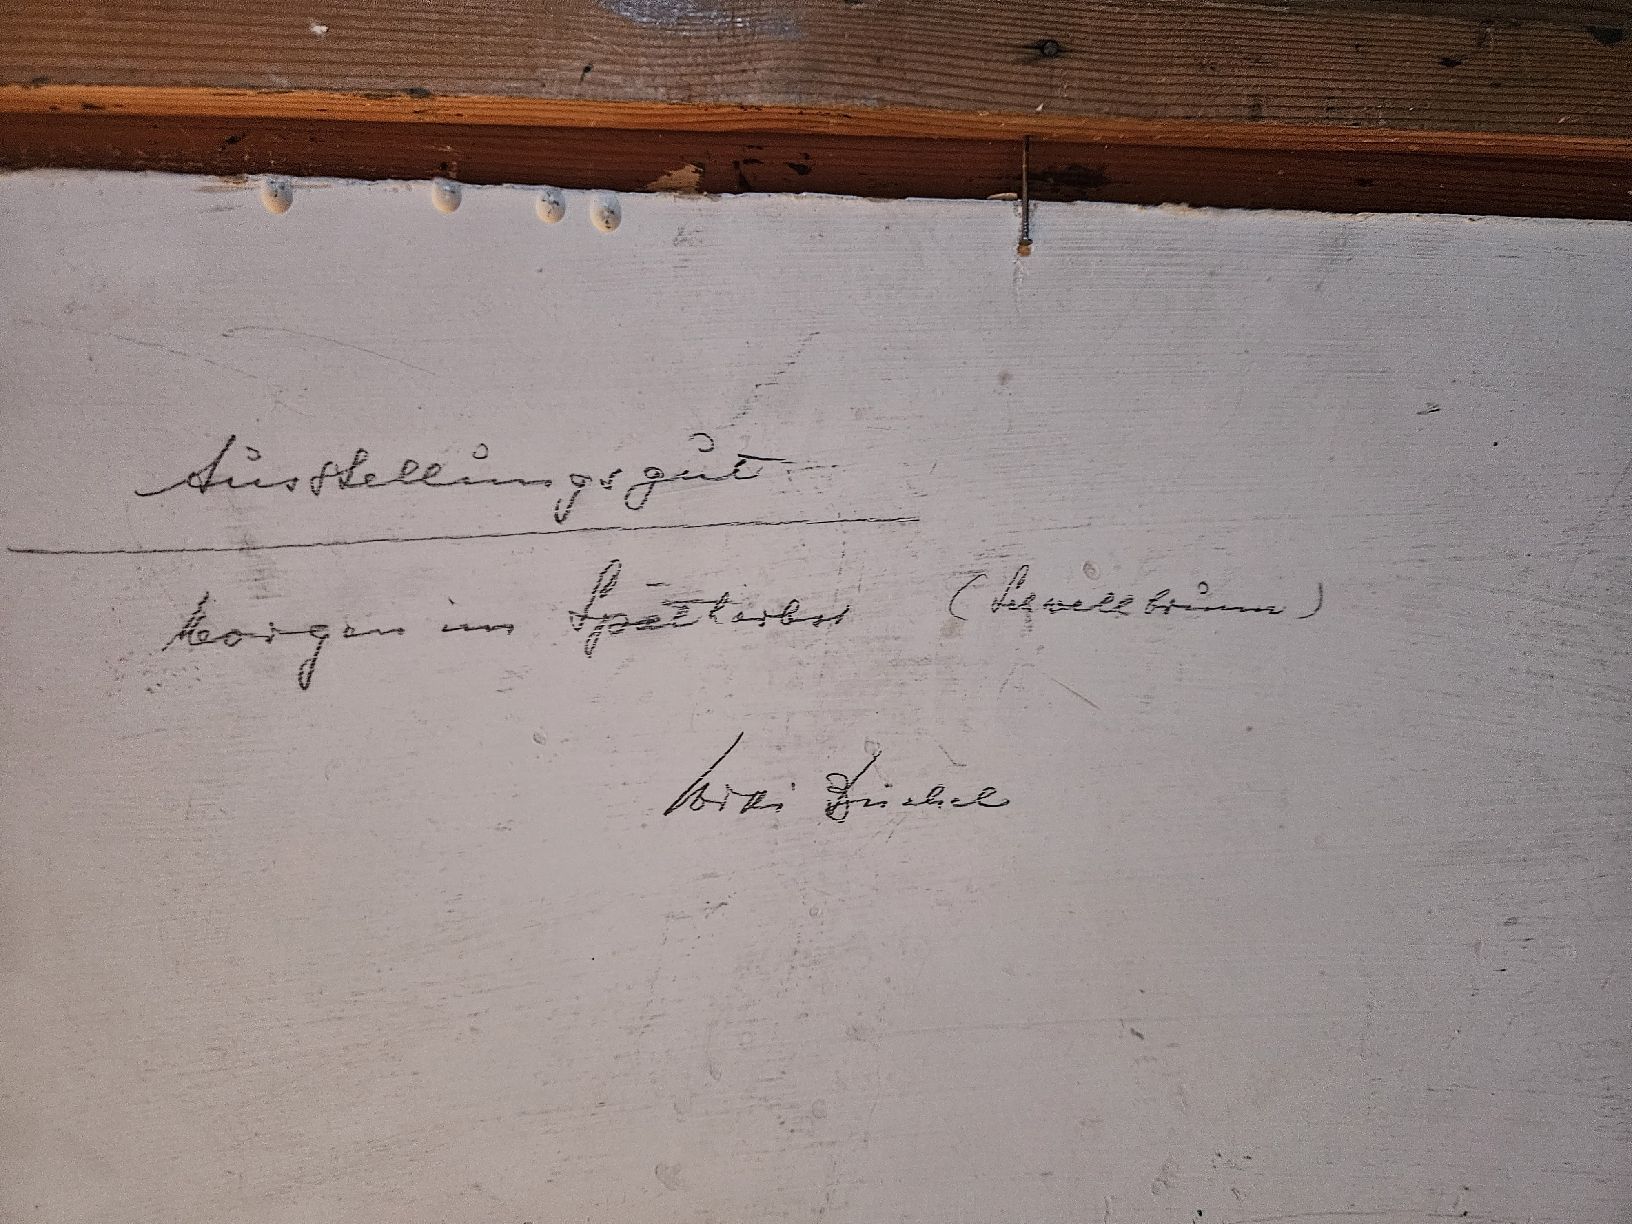 Ausstellungsgut
Morgen im Spätherbst (Schwellbrunn)
Willi